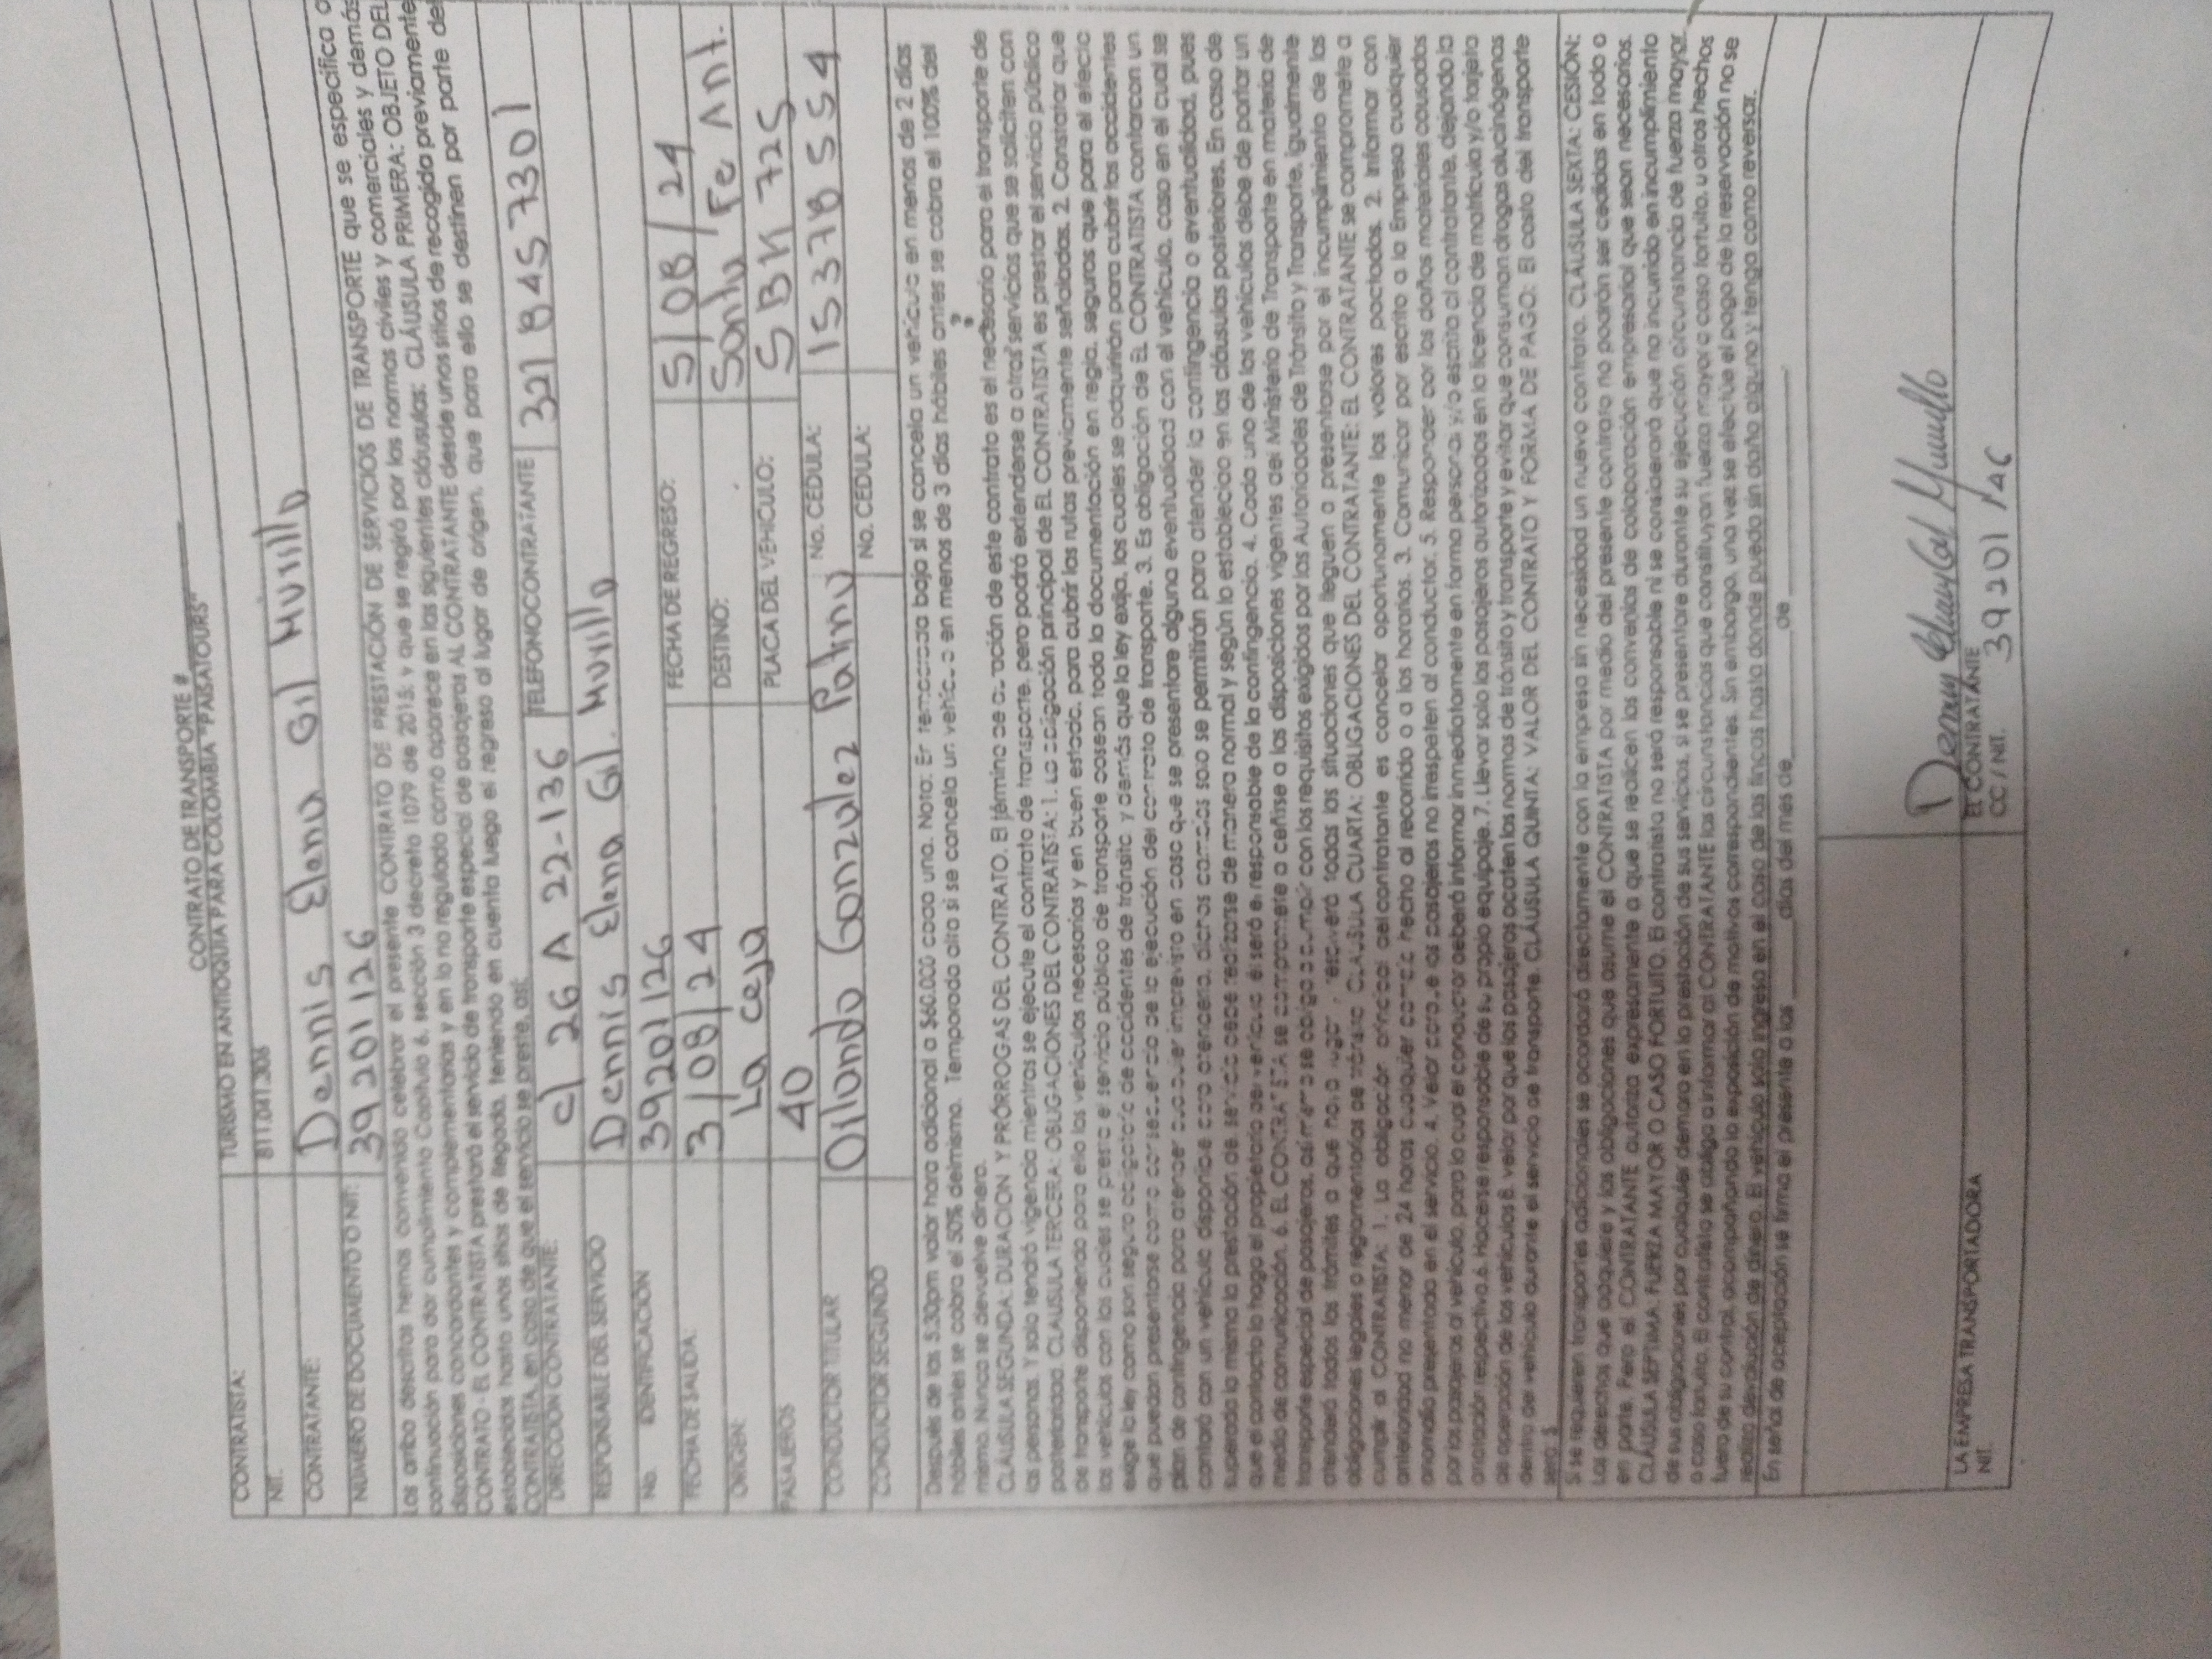 CONTRATO DE TRANSPORTE #
TURISMO EN ANTIOQUIA PARA COLOMBIA "PAISATOURS"
CONTRATISTA:
NIT. 811.041.306
CONTRATANTE: Dennis Elena Gil Murillo
NÚMERO DE DOCUMENTO O NIT: 39 201 126
Los arriba descritos hemos convenido celebrar el presente CONTRATO DE PRESTACIÓN DE SERVICIOS DE TRANSPORTE que se especifica a
continuación para dar cumplimiento Capítulo 6, sección 3 decreto 1079 de 2015; y que se regirá por las normas civiles y comerciales y demás
disposiciones concordantes y complementarias y en lo no regulado como aparece en las siguientes cláusulas: CLÁUSULA PRIMERA: OBJETO DEL
CONTRATO - EL CONTRATISTA prestará el servicio de transporte especial de pasajeros AL CONTRATANTE desde unos sitios de recogida previamente
establecidos hasta unos sitios de llegada, teniendo en cuenta luego el regreso al lugar de origen, que para ello se destinen por parte del
CONTRATISTA, en caso de que el servicio se preste, así:
DIRECCIÓN CONTRATANTE: cl 26 A 22-136 TELEFONOCONTRATANTE 321 8457301
RESPONSABLE DEL SERVICIO Dennis Elena Gil. Murillo
No. IDENTIFICACIÓN 39201126
FECHA DE SALIDA: 3/08/24 FECHA DE REGRESO: 5/08/24
ORIGEN: La Ceja DESTINO: Santa Fe Ant.
PASAJEROS 40 PLACA DEL VEHICULO: SBK 725
CONDUCTOR TITULAR Orlando Gonzalez Patinu No. CEDULA: 15378554
CONDUCTOR SEGUNDO No. CEDULA:
Después de las 5:30pm valor hora adicional a $60.000 cada una. Nota: En temporada baja si se cancela un vehículo en menos de 2 días
hábiles antes se cobra el 50% del mismo. Temporada alta si se cancela un vehículo en menos de 3 días hábiles antes se cobra el 100% del
mismo. Nunca se devuelve dinero.
CLÁUSULA SEGUNDA: DURACIÓN Y PRÓRROGAS DEL CONTRATO. El término de duración de este contrato es el necesario para el transporte de
las personas. Y solo tendrá vigencia mientras se ejecute el contrato de transporte, pero podrá extenderse a otros servicios que se soliciten con
posterioridad. CLAUSULA TERCERA: OBLIGACIONES DEL CONTRATISTA: 1. La obligación principal de EL CONTRATISTA es prestar el servicio público
de transporte disponiendo para ello los vehículos necesarios y en buen estado, para cubrir las rutas previamente señaladas. 2. Constatar que
los vehículos con los cuales se presta el servicio público de transporte posean toda la documentación en regla, seguros que para el efecto
exige la ley como son seguro obligatorio de accidentes de tránsito y demás que la ley exija, los cuales se adquirirán para cubrir los accidentes
que puedan presentarse como consecuencia de la ejecución del contrato de transporte. 3. Es obligación de EL CONTRATISTA contar con un
plan de contingencia para atender cualquier imprevisto en caso que se presentare alguna eventualidad con el vehículo, caso en el cual se
contará con un vehículo disponible para atenderla, dichos cambios solo se permitirán para atender la contingencia o eventualidad, pues
superada la misma la prestación de servicio debe realizarse de manera normal y según lo establecido en las cláusulas posteriores. En caso de
que el contacto lo haga el propietario del vehículo, él será el responsable de la contingencia. 4. Cada uno de los vehículos debe de portar un
medio de comunicación. 6. EL CONTRATISTA se compromete a ceñirse a las disposiciones vigentes del Ministerio de Transporte en materia de
transporte especial de pasajeros, así mismo se obliga a cumplir con los requisitos exigidos por las Autoridades de Tránsito y Transporte, igualmente
atenderá todos los trámites a que haya lugar y resolverá todas las situaciones que lleguen a presentarse por el incumplimiento de las
obligaciones legales o reglamentarias de tránsito CLAUSULA CUARTA: OBLIGACIONES DEL CONTRATANTE: EL CONTRATANTE se compromete a
cumplir al CONTRATISTA: 1. La obligación principal del contratante es cancelar oportunamente los valores pactados. 2. Informar con
anterioridad no menor de 24 horas cualquier cambio hecho al recorrido o a los horarios. 3. Comunicar por escrito a la Empresa cualquier
anomalía presentada en el servicio. 4. Velar porque los pasajeros no irrespeten al conductor. 5. Responder por los daños materiales causados
por los pasajeros al vehículo, para lo cual el conductor deberá informar inmediatamente en forma personal y/o escrita al contratante, dejando la
anotación respectiva. 6. Hacerse responsable de su propio equipaje. 7. Llevar solo los pasajeros autorizados en la licencia de matrícula y/o tarjeta
de operación de los vehículos 8. velar por que los pasajeros acaten las normas de tránsito y transporte y evitar que consuman drogas alucinógenas
dentro del vehículo durante el servicio de transporte. CLÁUSULA QUINTA: VALOR DEL CONTRATO Y FORMA DE PAGO: El costo del transporte
será $
Si se requieren transportes adicionales se acordará directamente con la empresa sin necesidad un nuevo contrato. CLÁUSULA SEXTA: CESIÓN:
Los derechos que adquiere y las obligaciones que asume el CONTRATISTA por medio del presente contrato no podrán ser cedidas en todo o
en parte. Pero el CONTRATANTE autoriza expresamente a que se realicen los convenios de colaboración empresarial que sean necesarios.
CLÁUSULA SEPTIMA. FUERZA MAYOR O CASO FORTUITO. El contratista no será responsable ni se considerará que ha incurrido en incumplimiento
de sus obligaciones por cualquier demora en la prestación de sus servicios, si se presentare durante su ejecución circunstancia de fuerza mayor
o caso fortuito. El contratista se obliga a informar al CONTRATANTE las circunstancias que constituyan fuerza mayor o caso fortuito, u otros hechos
fuera de su control, acompañando la exposición de motivos correspondientes. Sin embargo, una vez se efectúe el pago de la reservación no se
realiza devolución de dinero. El vehículo solo ingresa en el caso de las fincas hasta donde pueda sin daño alguno y tenga como reversar.
En señas de aceptación se firma el presente a los ______ días del mes de ______ de ______.
Denny Elena Gil Murillo
LA EMPRESA TRANSPORTADORA EL CONTRATANTE
NIT. CC / NIT. 39 201 126